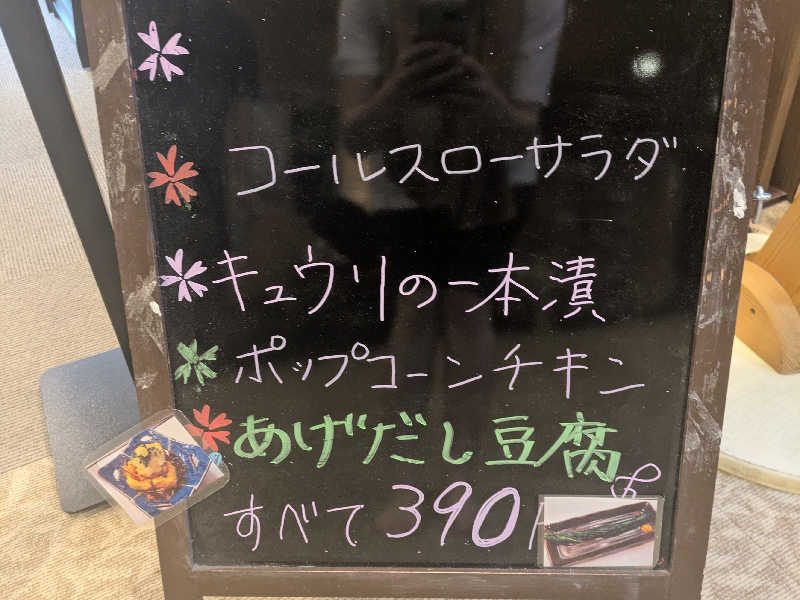 コールスローサラダ
キュウリの一本漬
ポップコーンチキン
あげだし豆腐
すべて390